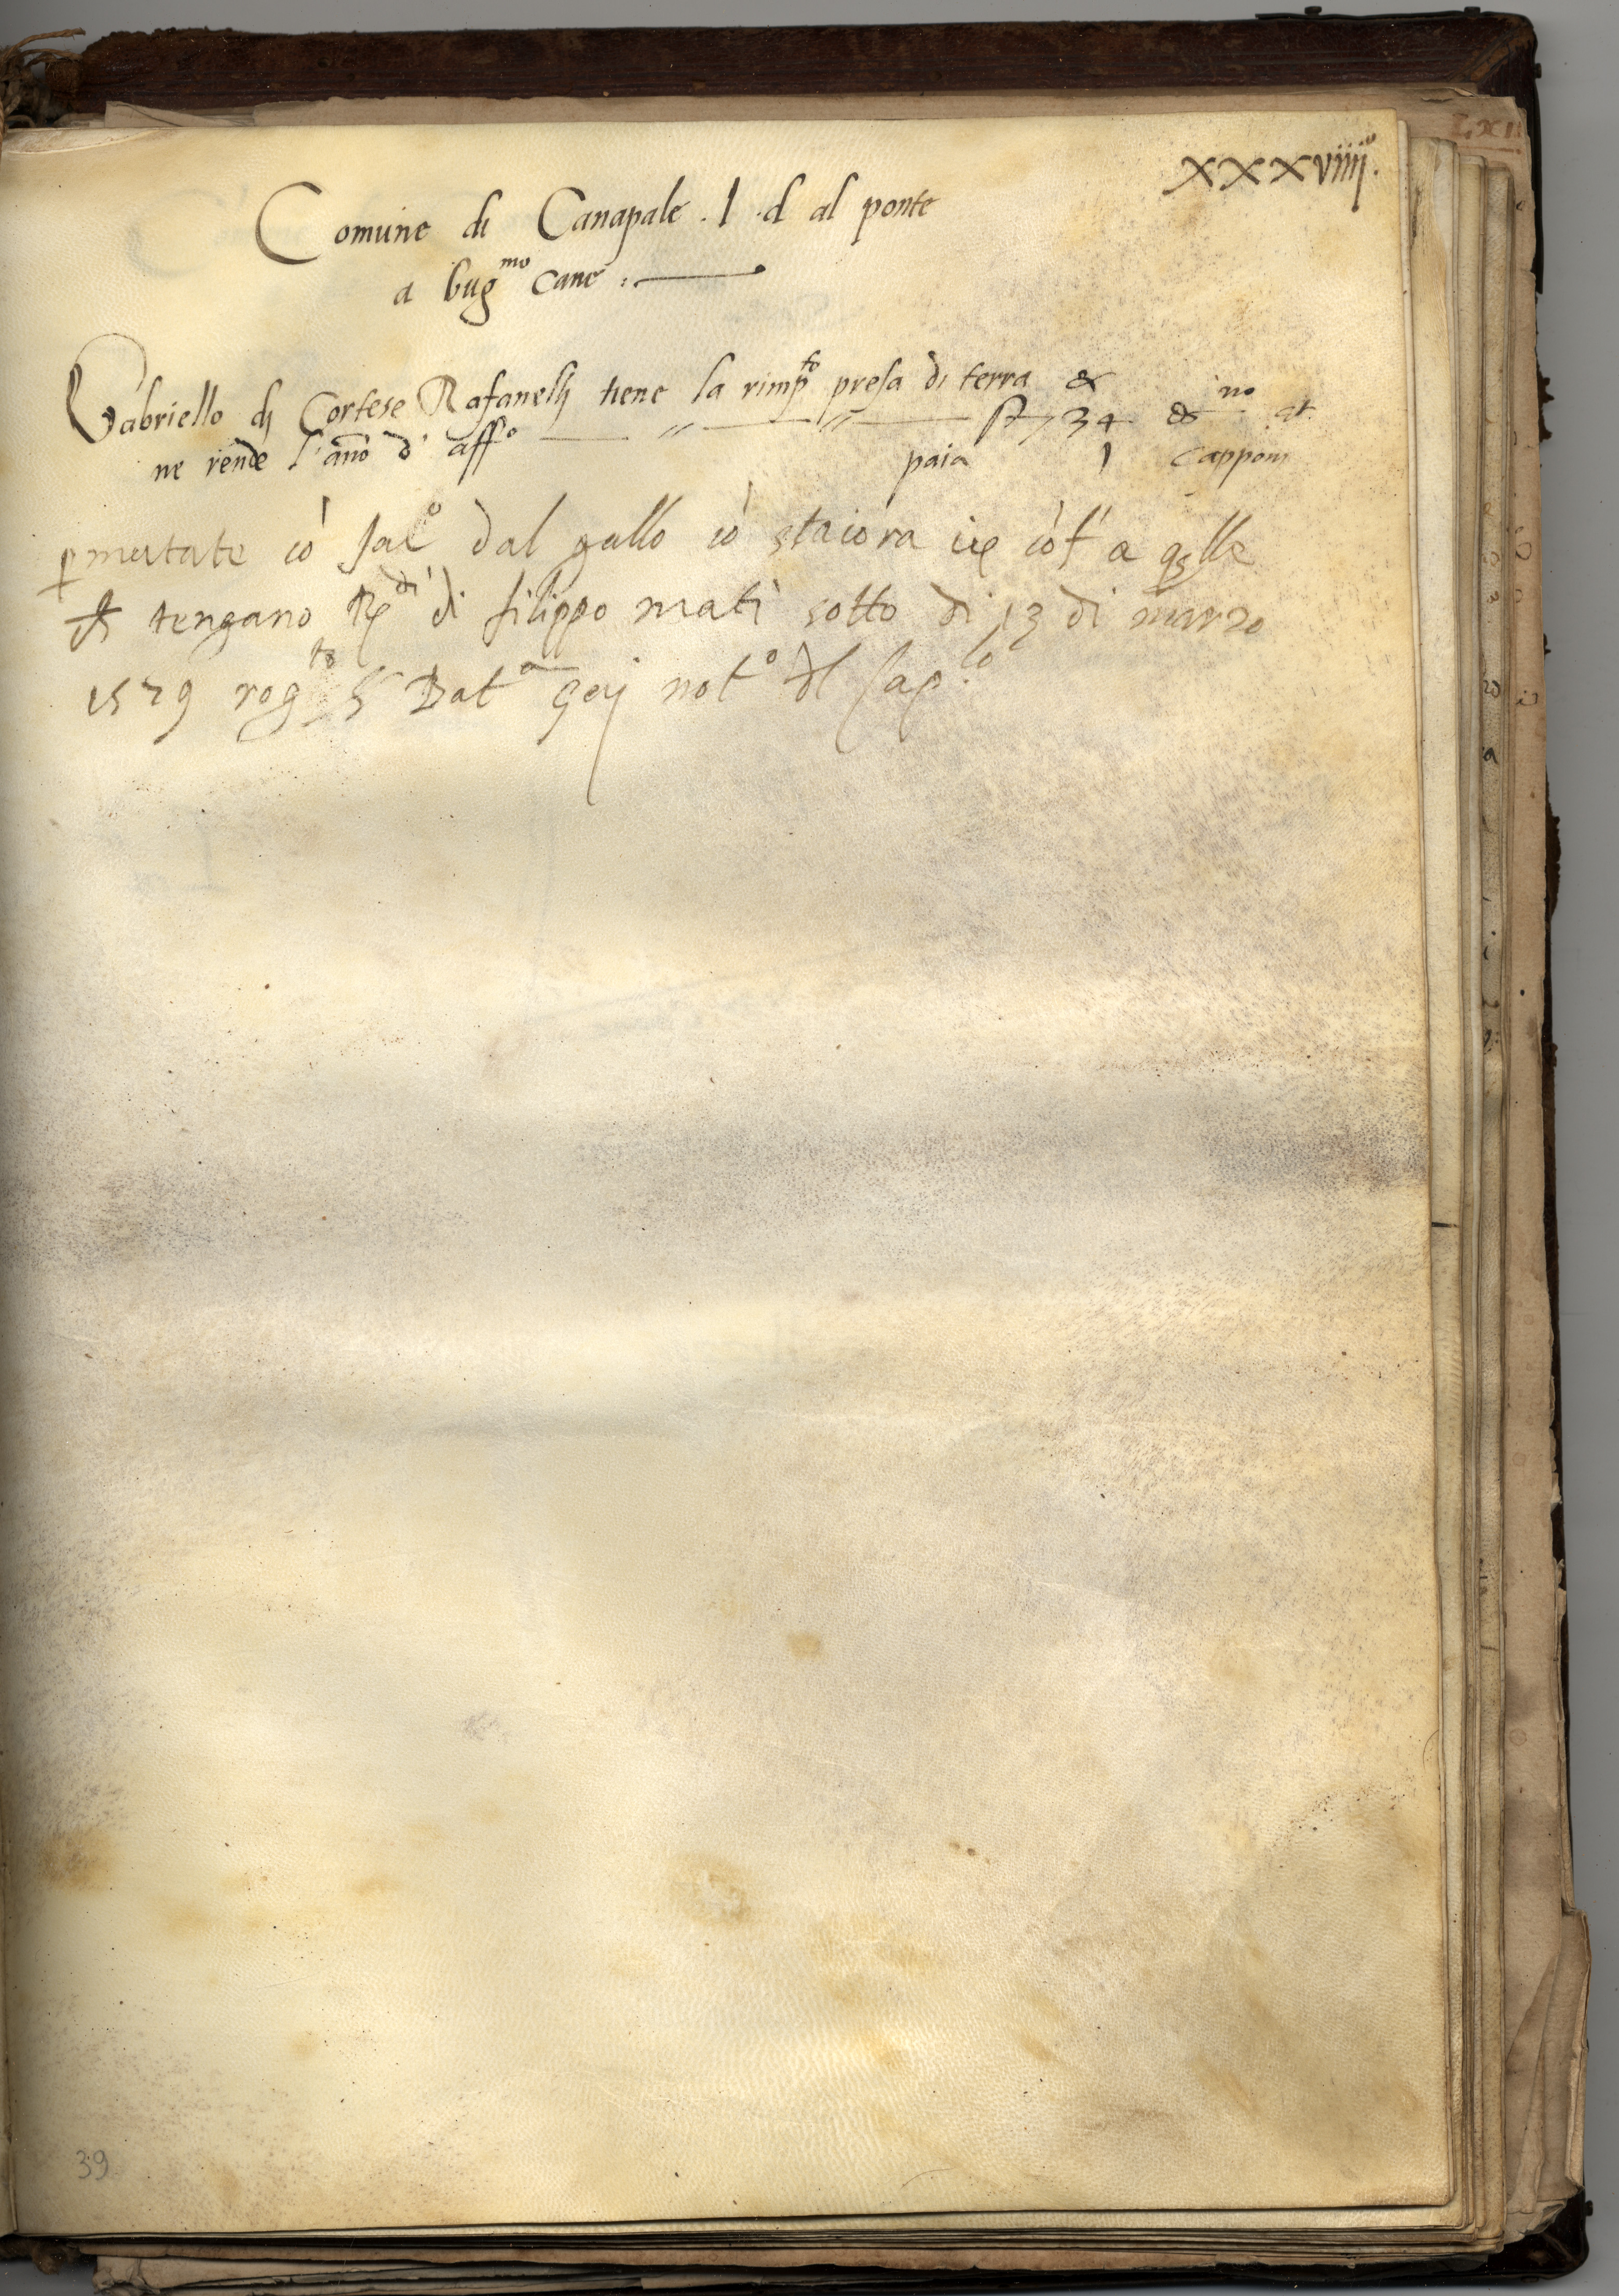 xxxviiij°.
Comune di Canapale . l . d al ponte
a bug mo cane :
Gabriello dj Cortese Rafanellj tiene la rimp to presa di terra &
ne rende l'ano d' aff° 34 & no gr.
paia 1 capponi
pmutate cò Jac° dal gallo cò staiora cò a qlle
tengano di filippo mati sotto di 13 di marzo
1529 rog to Bat a not° dl
39
LXII